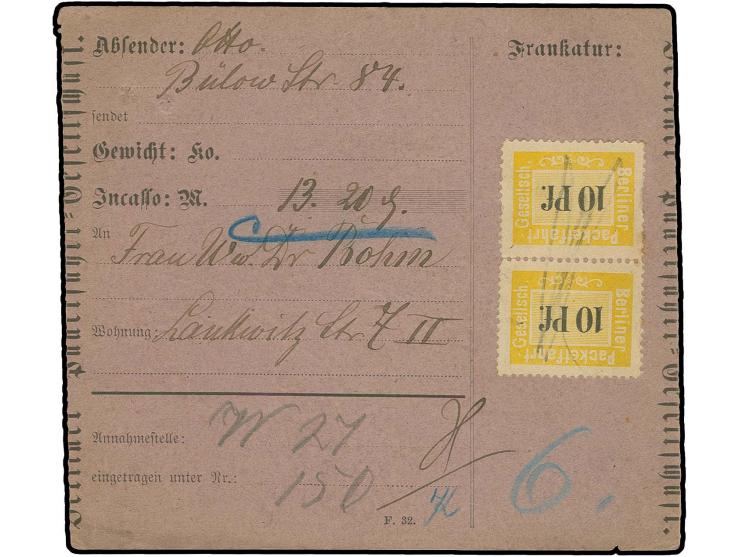 Absender: Otto.
Bülow Str 84.
sendet
Gewicht: Ko.
Incasso: M. 13. 20 ₰.
An
Frau Ww. Dr Böhm
Wohnung: Lankwitz Str 7 II
Annahmestelle: W 27
eingetragen unter Nr.: 150
F. 32.
Frankatur:
Berliner
10 Pf.
Packetfahrt
Gesellsch.
Berliner
10 Pf.
Packetfahrt
Gesellsch.
6.
Berliner Packetfahrt-Gesellschaft.
Berliner Packetfahrt-Gesellschaft.